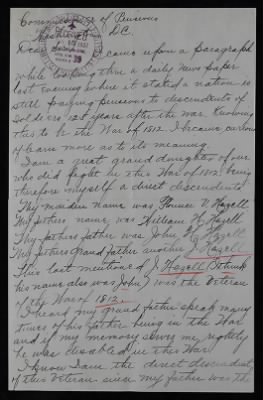 Commissioner of Pensions
Washington D.C.
Dear Sir: I came upon a paragraph
while looking thru a daily news paper
last evening where it stated a nation is
still paying pensions to descendents of
soldiers 125 years after the war. Knowing
this to be the War of 1812. I became curious
to learn more as to its meaning.
I am a great grand daughter of one
who did fight in this War of 1812. being
therefore myself a direct descendent
My maiden name was Florence V. Hazell
My fathers name was William H. Hazell
My fathers father was John H. Hazell
My fathers Grand father another J Hazell
This last mentioned J Hazell (I think
his name also was John) was the Veteran
of the War of 1812.
I heard my grand father speak many
times of his father being in the War
and if my memory serves me rightly
he was disabled in this War.
I know I am the direct descendent
of this Veteran since my father was the